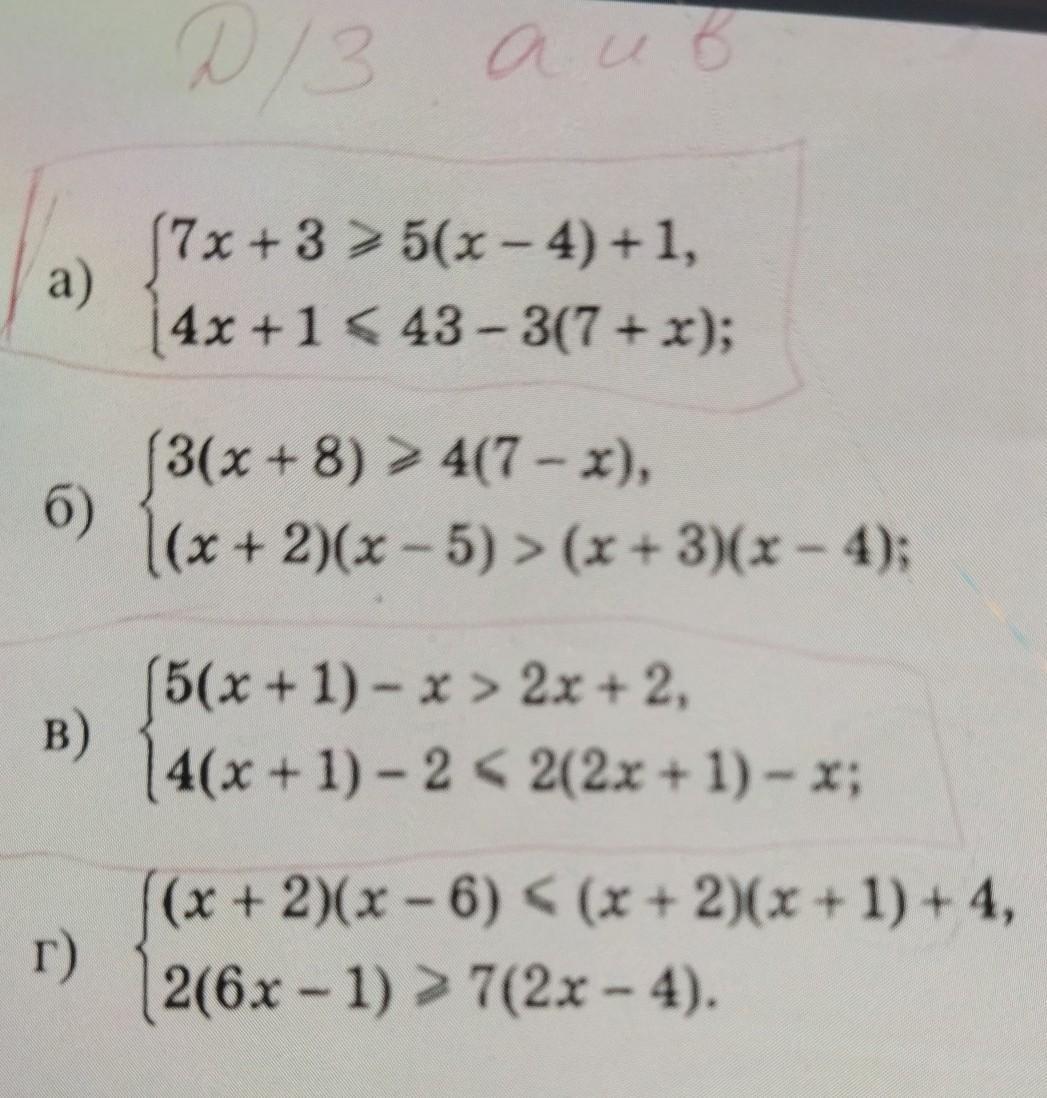 Д/З а и в
а) { 7x + 3 ⩾ 5(x – 4) + 1,
4x + 1 ⩽ 43 – 3(7 + x);
б) { 3(x + 8) ⩾ 4(7 – x),
(x + 2)(x – 5) > (x + 3)(x – 4);
в) { 5(x + 1) – x > 2x + 2,
4(x + 1) – 2 ⩽ 2(2x + 1) – x;
г) { (x + 2)(x – 6) ⩽ (x + 2)(x + 1) + 4,
2(6x – 1) ⩾ 7(2x – 4).